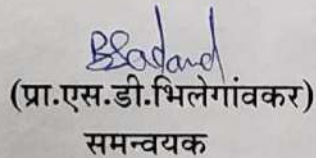 (प्रा.एस.डी.भिलेगांवकर)
समन्वयक